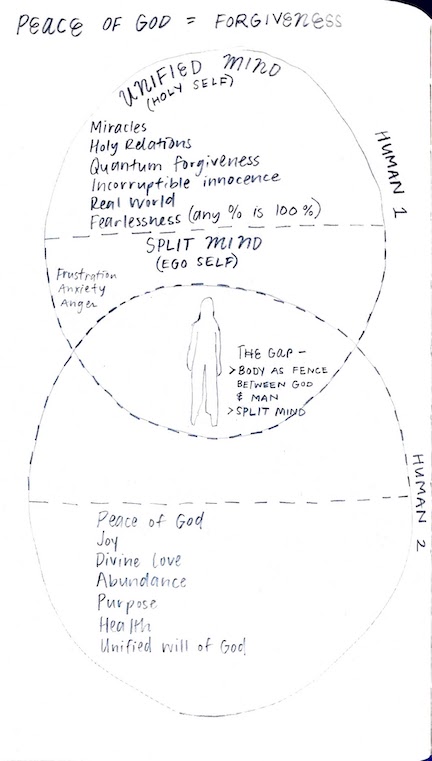 PEACE OF GOD = FORGIVENESS
UNIFIED MIND
(HOLY SELF)
Miracles
Holy Relations
Quantum forgiveness
Incorruptible innocence
Real World
Fearlessness (any % is 100%)
HUMAN 1
SPLIT MIND
(EGO SELF)
Frustration
Anxiety
Anger
THE GAP -
> BODY AS FENCE
BETWEEN GOD
& MAN
> SPLIT MIND
HUMAN 2
Peace of God
Joy
Divine Love
Abundance
Purpose
Health
Unified will of God